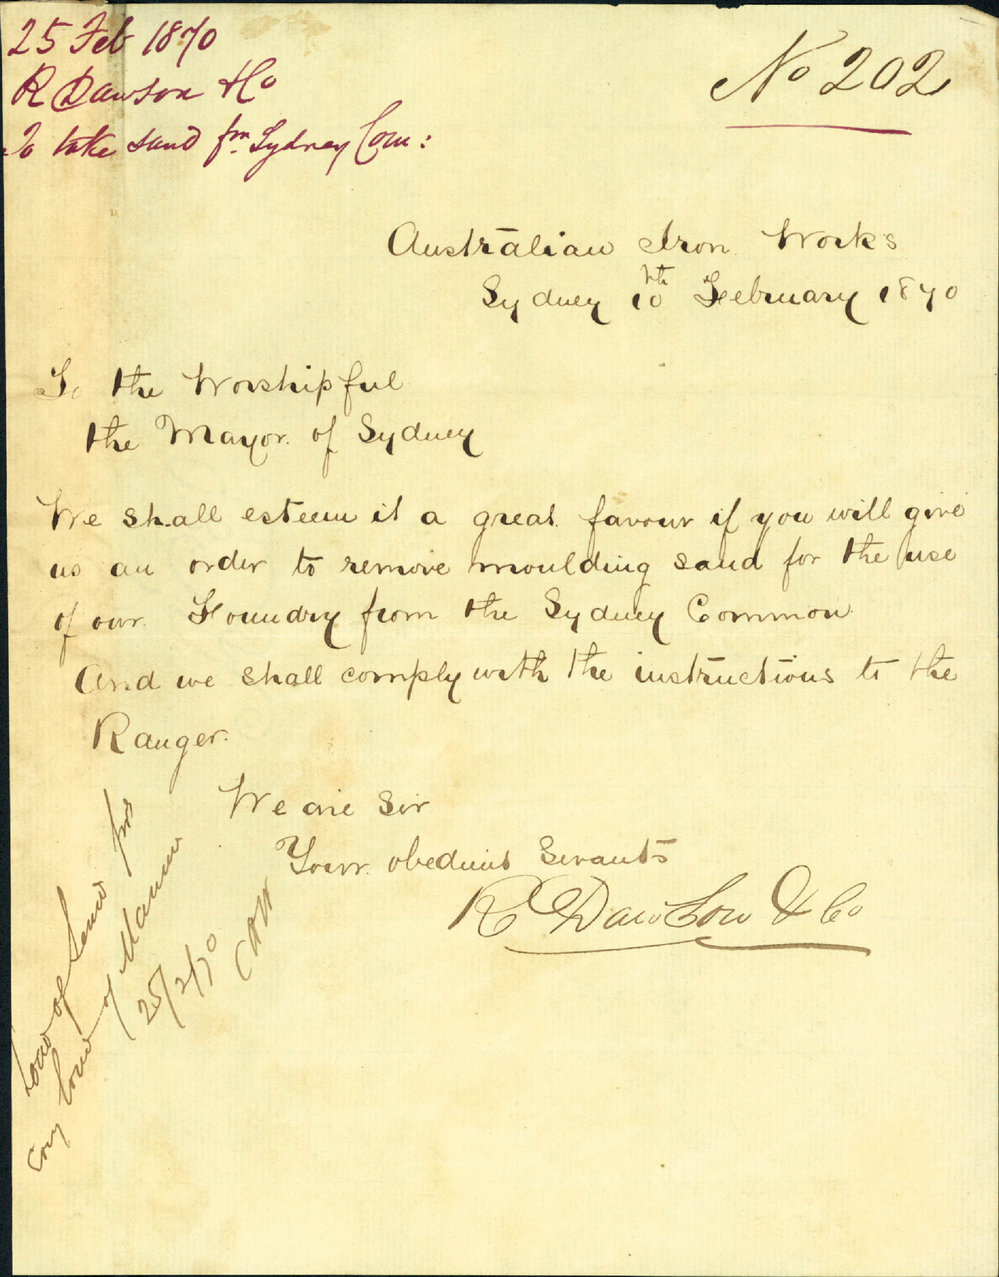 25 Feb 1870
R Dawson & Co
To take sand fm Sydney Com:
No 202
Australian Iron Works
Sydney 10th February 1870
To the Worshipful
the Mayor of Sydney
We shall esteem it a great favour if you will give
us an order to remove moulding sand for the use
of our Foundry from the Sydney Common
And we shall comply with the instructions to the
Ranger.
We are Sir
Your obedient Servants
R Dawson & Co
Load of Sand
25/2/70